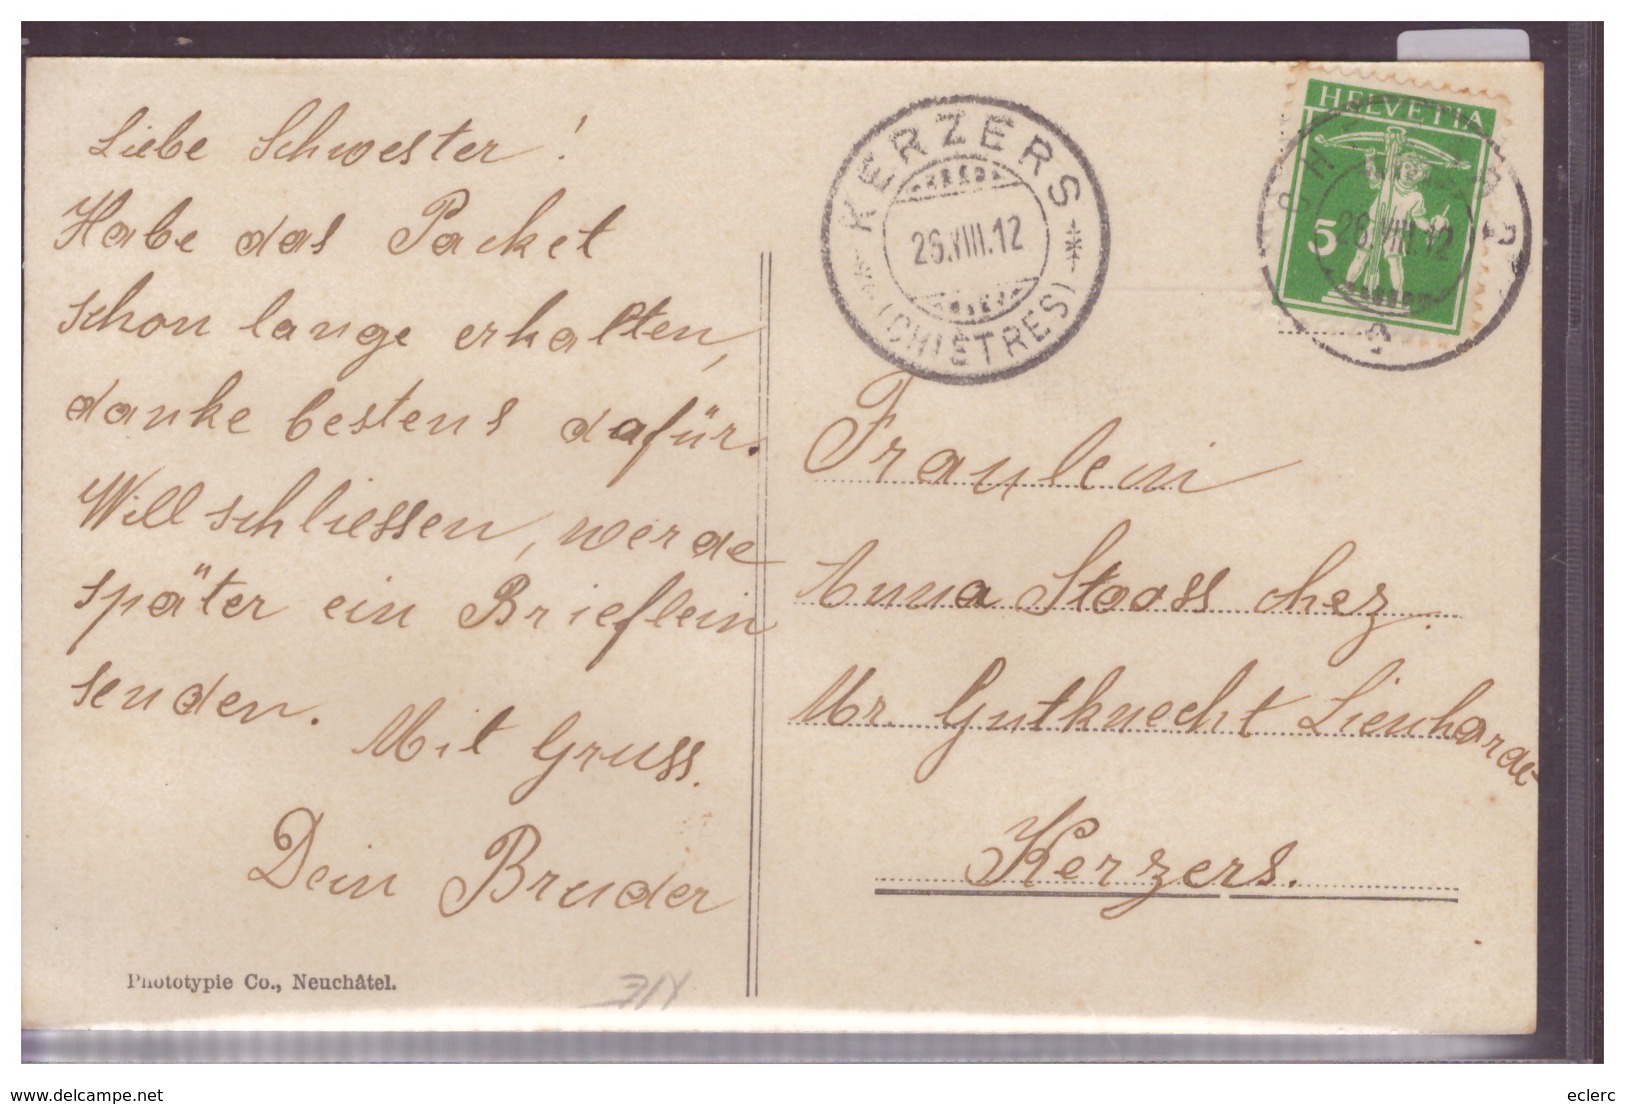 Liebe Schwester!
Habe das Packet
schon lange erhalten,
danke bestens dafür.
Will schliessen, werde
später ein Brieflein
senden. Mit Gruss.
Dein Bruder
Phototypie Co., Neuchâtel.
KERZERS
26.VIII.12
(CHIÈTRES)
HELVETIA
5
26.VIII.12
Fraulein
Anna Stooss chez.
Mr. Gutknecht Lienhard
Kerzers.
www.delcampe.net
eclerc